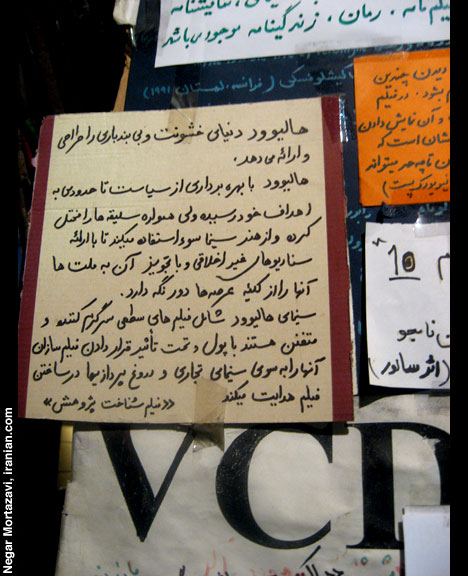 فیلم نامه، رمان، زندگینامه موجود می باشد
کیشلوفسکی (فرانسه، لهستان ۱۹۹۱)
دیدن چنین
و آن نمایش دادن
هالیوود دنیای خشونت و بی بندباری را طراحی
و ارائه می دهد.
هالیوود با بهره برداری از سیاست تا حدودی به
اهداف خود رسیده ولی همواره سلیقه ها را مختل
کرده و از هنر سینما سوء استفاده میکند تا با ارائه
سناریوهای غیر اخلاقی و با تجویز آن به ملت ها
آنها را از کلیه عرصه ها دور نگه دارد.
سینمای هالیوود شامل فیلم های سطحی سرگرم کننده و
متفنن هستند با پول و تحت تأثیر قرار دادن فیلم سازان
آنها را به سوی سینمای تجاری و دروغ پردازیها در ساختن
فیلم هدایت میکند «فیلم شناخت پژوهش»
10
VCD
Negar Mortazavi, iranian.com